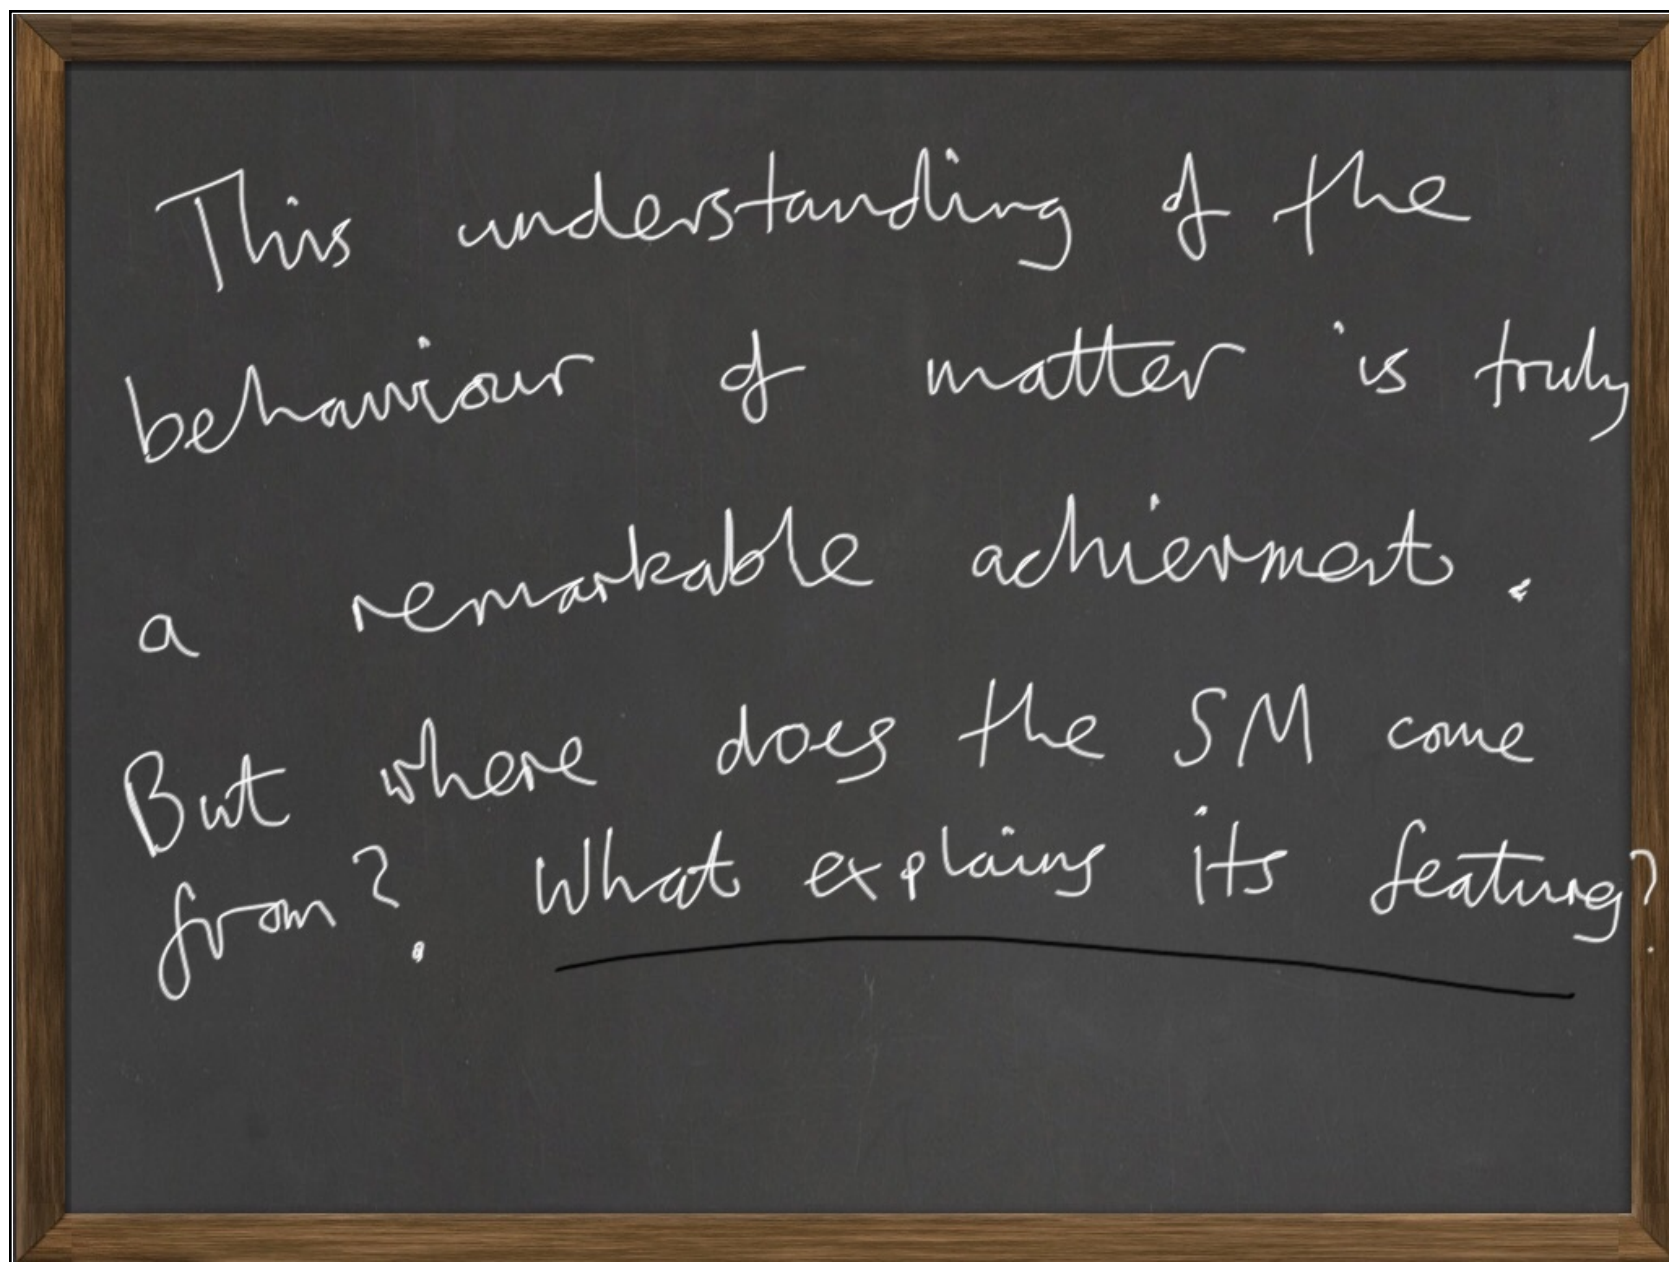 This understanding of the
behaviour of matter is truly
a remarkable achievment.
But where does the SM come
from? What explains its features?